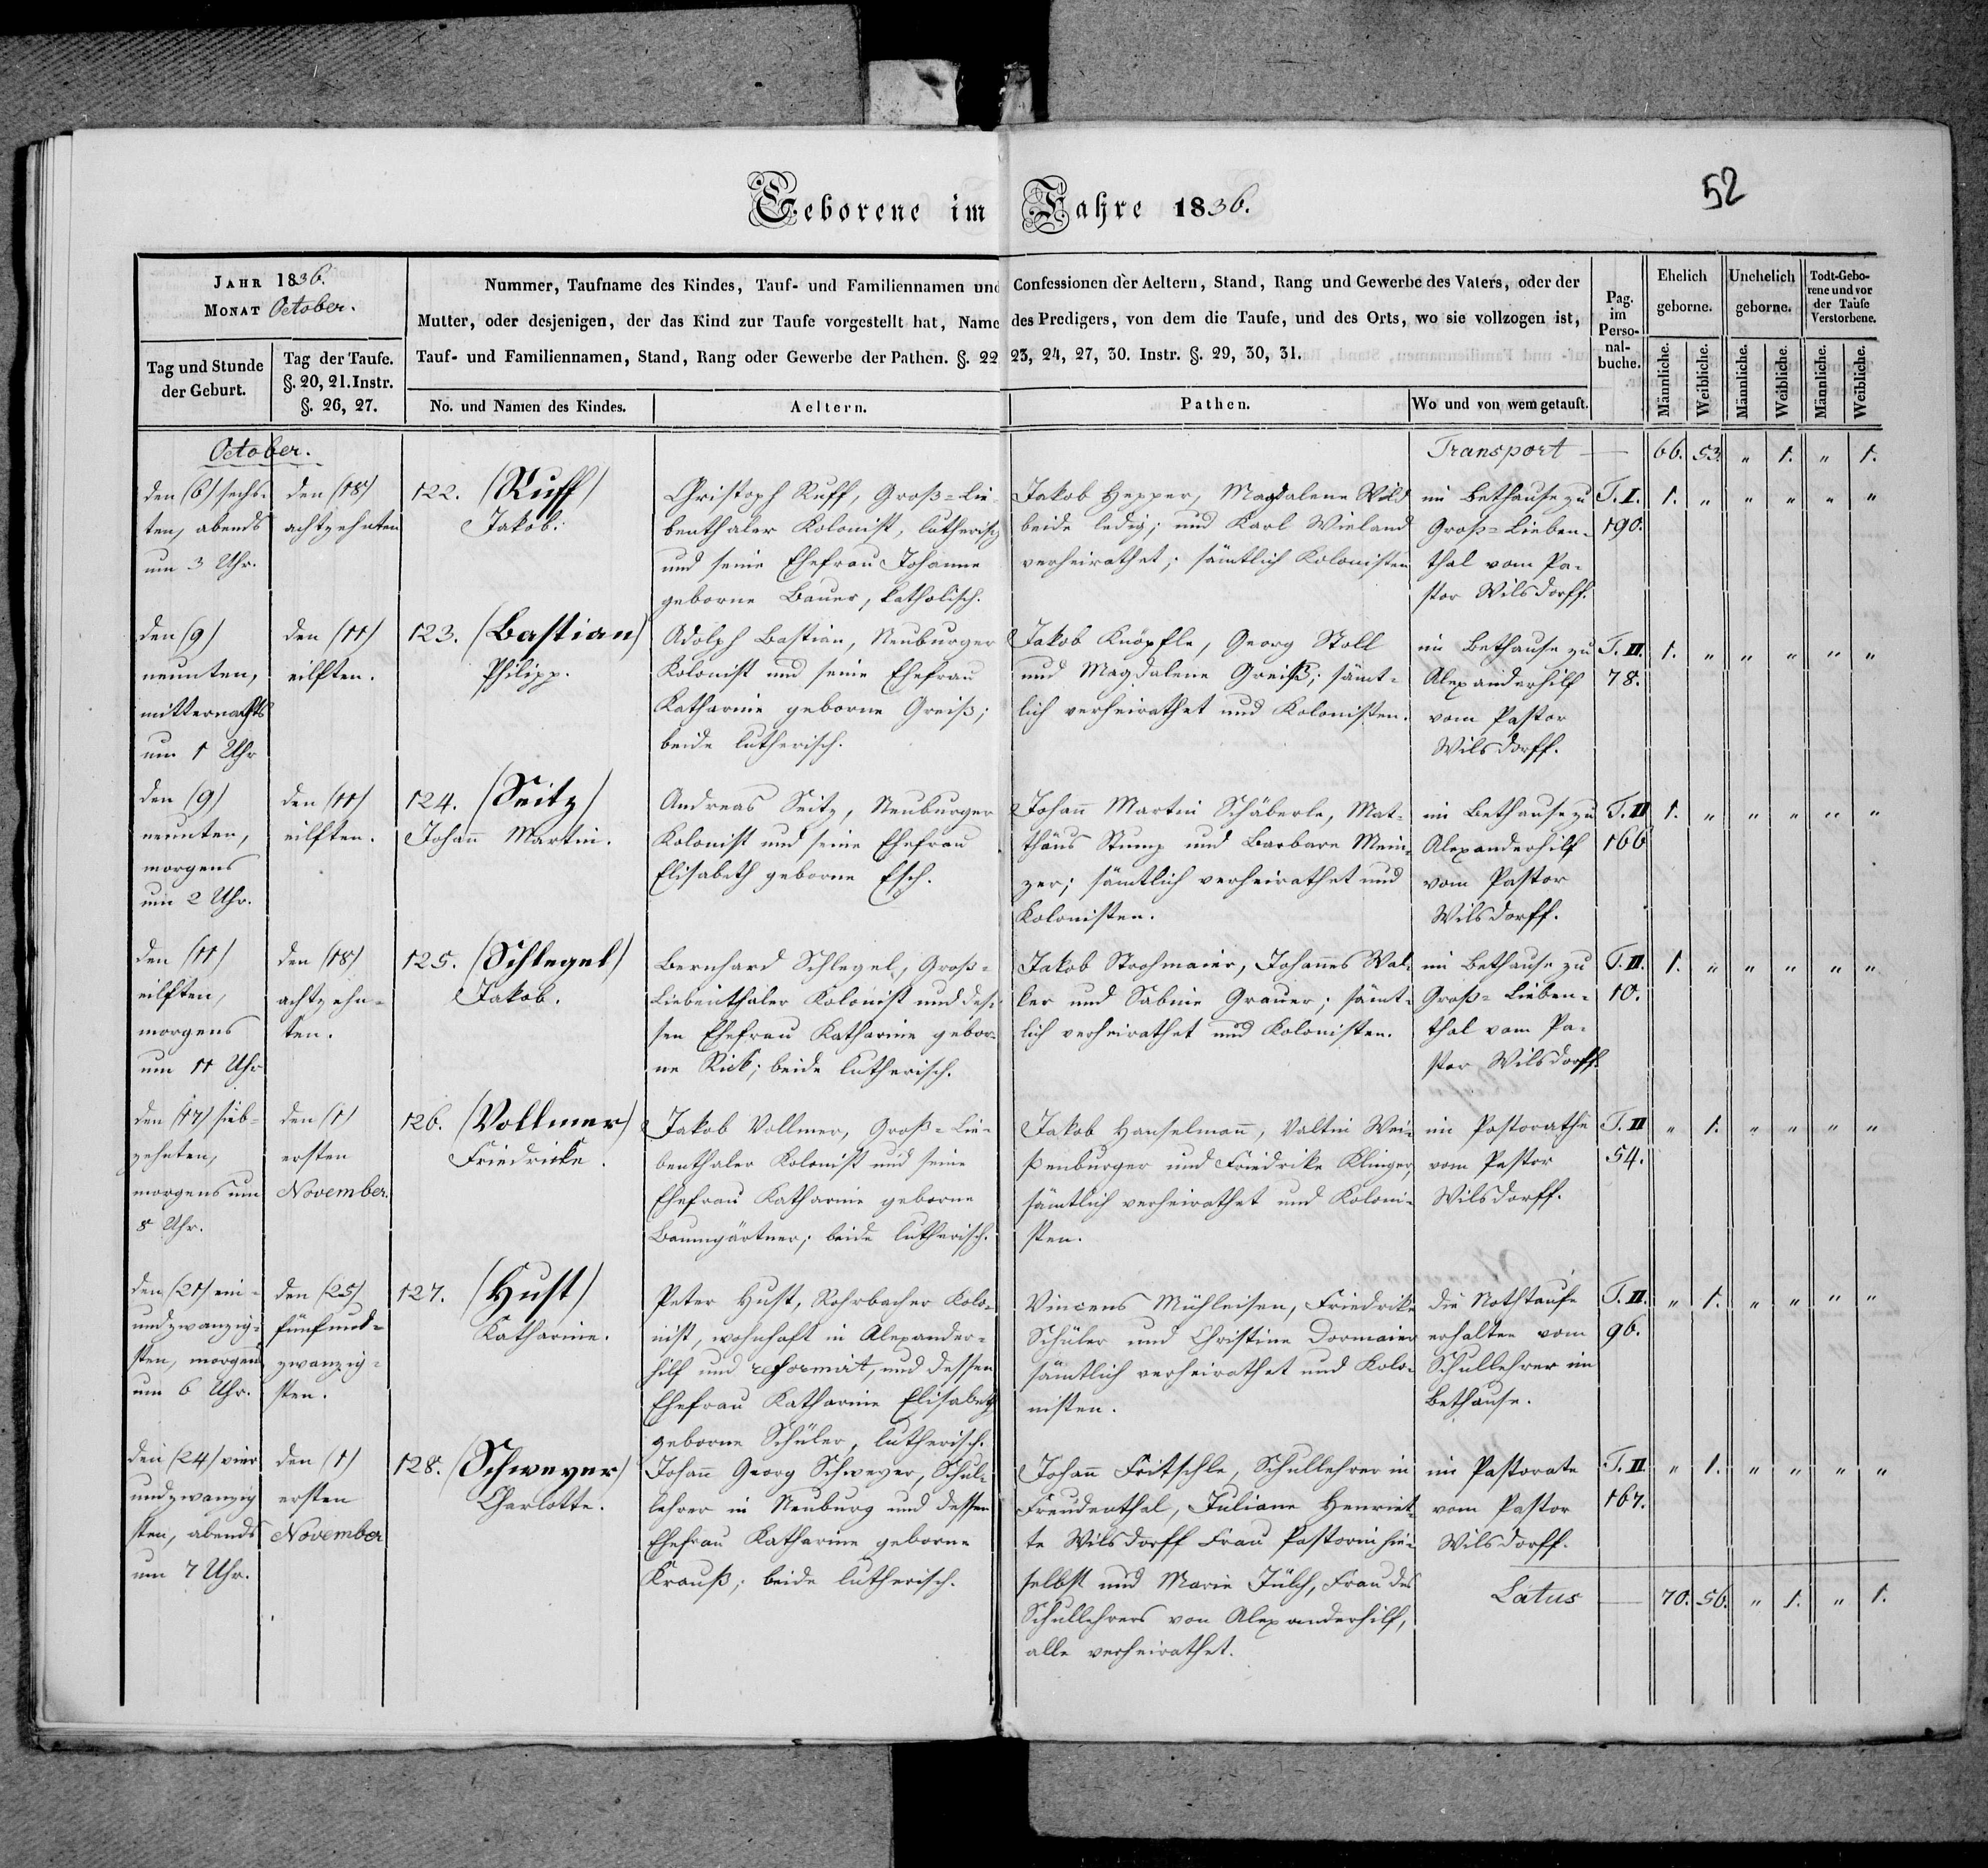 Geborene im Jahre 1836.
52
JAHR 1836.
MONAT October.
Nummer, Taufname des Kindes, Tauf- und Familiennamen und Confessionen der Aeltern, Stand, Rang und Gewerbe des Vaters, oder der
Mutter, oder desjenigen, der das Kind zur Taufe vorgestellt hat, Name des Predigers, von dem die Taufe, und des Orts, wo sie vollzogen ist,
Tauf- und Familiennamen, Stand, Rang oder Gewerbe der Pathen. §. 22 23, 24, 27, 30. Instr. §. 29, 30, 31.
Tag und Stunde
der Geburt.
Tag der Taufe.
§. 20, 21. Instr.
§. 26, 27.
No. und Namen des Kindes.
Aeltern.
Pathen.
Wo und von wem getauft.
Pag.
im
Perso-
nal-
buche.
Ehelich
geborne.
Unehelich
geborne.
Todt-Gebo-
rene und vor
der Taufe
Verstorbene.
Männliche.
Weibliche.
Männliche.
Weibliche.
Männliche.
Weibliche.
October.
Transport — 66. 53. " 1. " 1.
den (6) sechs-
ten, abends
um 3 Uhr.
den (18)
achtzehnten
122. (Ruff)
Jakob.
Christoph Ruff, Groß-Lie-
benthaler Kolonist, lutherisch
und seine Ehefrau Johanne
geborne Bauer, katholisch.
Jakob Hepper, Magdalena Wild
beide ledig; und Karl Wieland
verheirathet; sämtlich Kolonisten
im Bethause zu
Groß-Lieben-
thal vom Pa-
stor Wilsdorff.
T. I.
190.
1. " " " " "
den (9)
neunten,
mitternachts
um 1 Uhr
den (11)
eilften.
123. (Bastian)
Philipp.
Adolph Bastian, Neuburger
Kolonist und seine Ehefrau
Katharine geborne Greiß;
beide lutherisch.
Jakob Knöpfle, Georg Stoll
und Magdalena Greiß; sämt-
lich verheirathet und Kolonisten.
im Bethause zu
Alexanderhilf
vom Pastor
Wilsdorff.
T. II.
78.
1. " " " " "
den (9)
neunten,
morgens
um 2 Uhr.
den (11)
eilften.
124. (Seitz)
Johann Martin.
Andreas Seitz, Neuburger
Kolonist und seine Ehefrau
Elisabeth geborne Esch.
Johann Martin Schäberle, Mat-
thäus Stumz und Barbara Mein-
zer; sämtlich verheirathet und
Kolonisten.
im Bethause zu
Alexanderhilf
vom Pastor
Wilsdorff.
T. II
166
1. " " " " "
den (11)
eilften,
morgens
um 11 Uhr
den (18)
achtzehn-
ten.
125. (Schlegel)
Jakob.
Bernhard Schlegel, Groß-
Liebenthaler Kolonist und des-
sen Ehefrau Katharine gebor-
ne Rick; beide lutherisch.
Jakob Strohmaier, Johannes Wal-
ker und Sabine Grauer; sämt-
lich verheirathet und Kolonisten.
im Bethause zu
Groß-Lieben-
thal vom Pa-
stor Wilsdorff
T. II.
10.
1. " " " " "
den (17) sieb-
zehnten,
morgens um
8 Uhr.
den (1)
ersten
November.
126. (Vollmer)
Friedricke.
Jakob Vollmer, Groß-Lie-
benthaler Kolonist und seine
Ehefrau Katharine geborne
Baumgärtner; beide lutherisch.
Jakob Hanselmann, Valtin Wei-
ßenburger und Friedrike Klinger,
sämtlich verheirathet und Koloni-
sten.
im Pastorathe
vom Pastor
Wilsdorff.
T. II
54.
" 1. " " " "
den (21) ein-
undzwanzig-
sten, morgens
um 6 Uhr.
den (25)
fünfund-
zwanzig-
sten.
127. (Hust)
Katharine.
Peter Hust, Rohrbacher Kolo-
nist, wohnhaft in Alexander-
hilf und reformirt, und dessen
Ehefrau Katharine Elisabeth
geborne Schüler, lutherisch.
Vincens Mühleisen, Friedrike
Schüler und Christine Dormaier
sämtlich verheirathet und Kolo-
nisten.
die Nothtaufe
erhalten vom
Schullehrer im
Bethause.
T. II.
96.
" 1. " " " "
den (24) vier
undzwanzig
sten, abends
um 7 Uhr.
den (1)
ersten
November
128. (Schweyer)
Charlotte.
Johann Georg Schweyer, Schul-
lehrer in Neuburg und dessen
Ehefrau Katharine geborne
Krauß; beide lutherisch.
Johann Fritschle, Schullehrer in
Freudenthal, Juliane Henriet-
te Wilsdorff Frau Pastorin hie-
selbst und Marie Jülch, Frau des
Schullehrers von Alexanderhilf,
alle verheirathet.
im Pastorate
vom Pastor
Wilsdorff.
T. II
167.
" 1. " " " "
Latus — 70. 56. " 1. " 1.